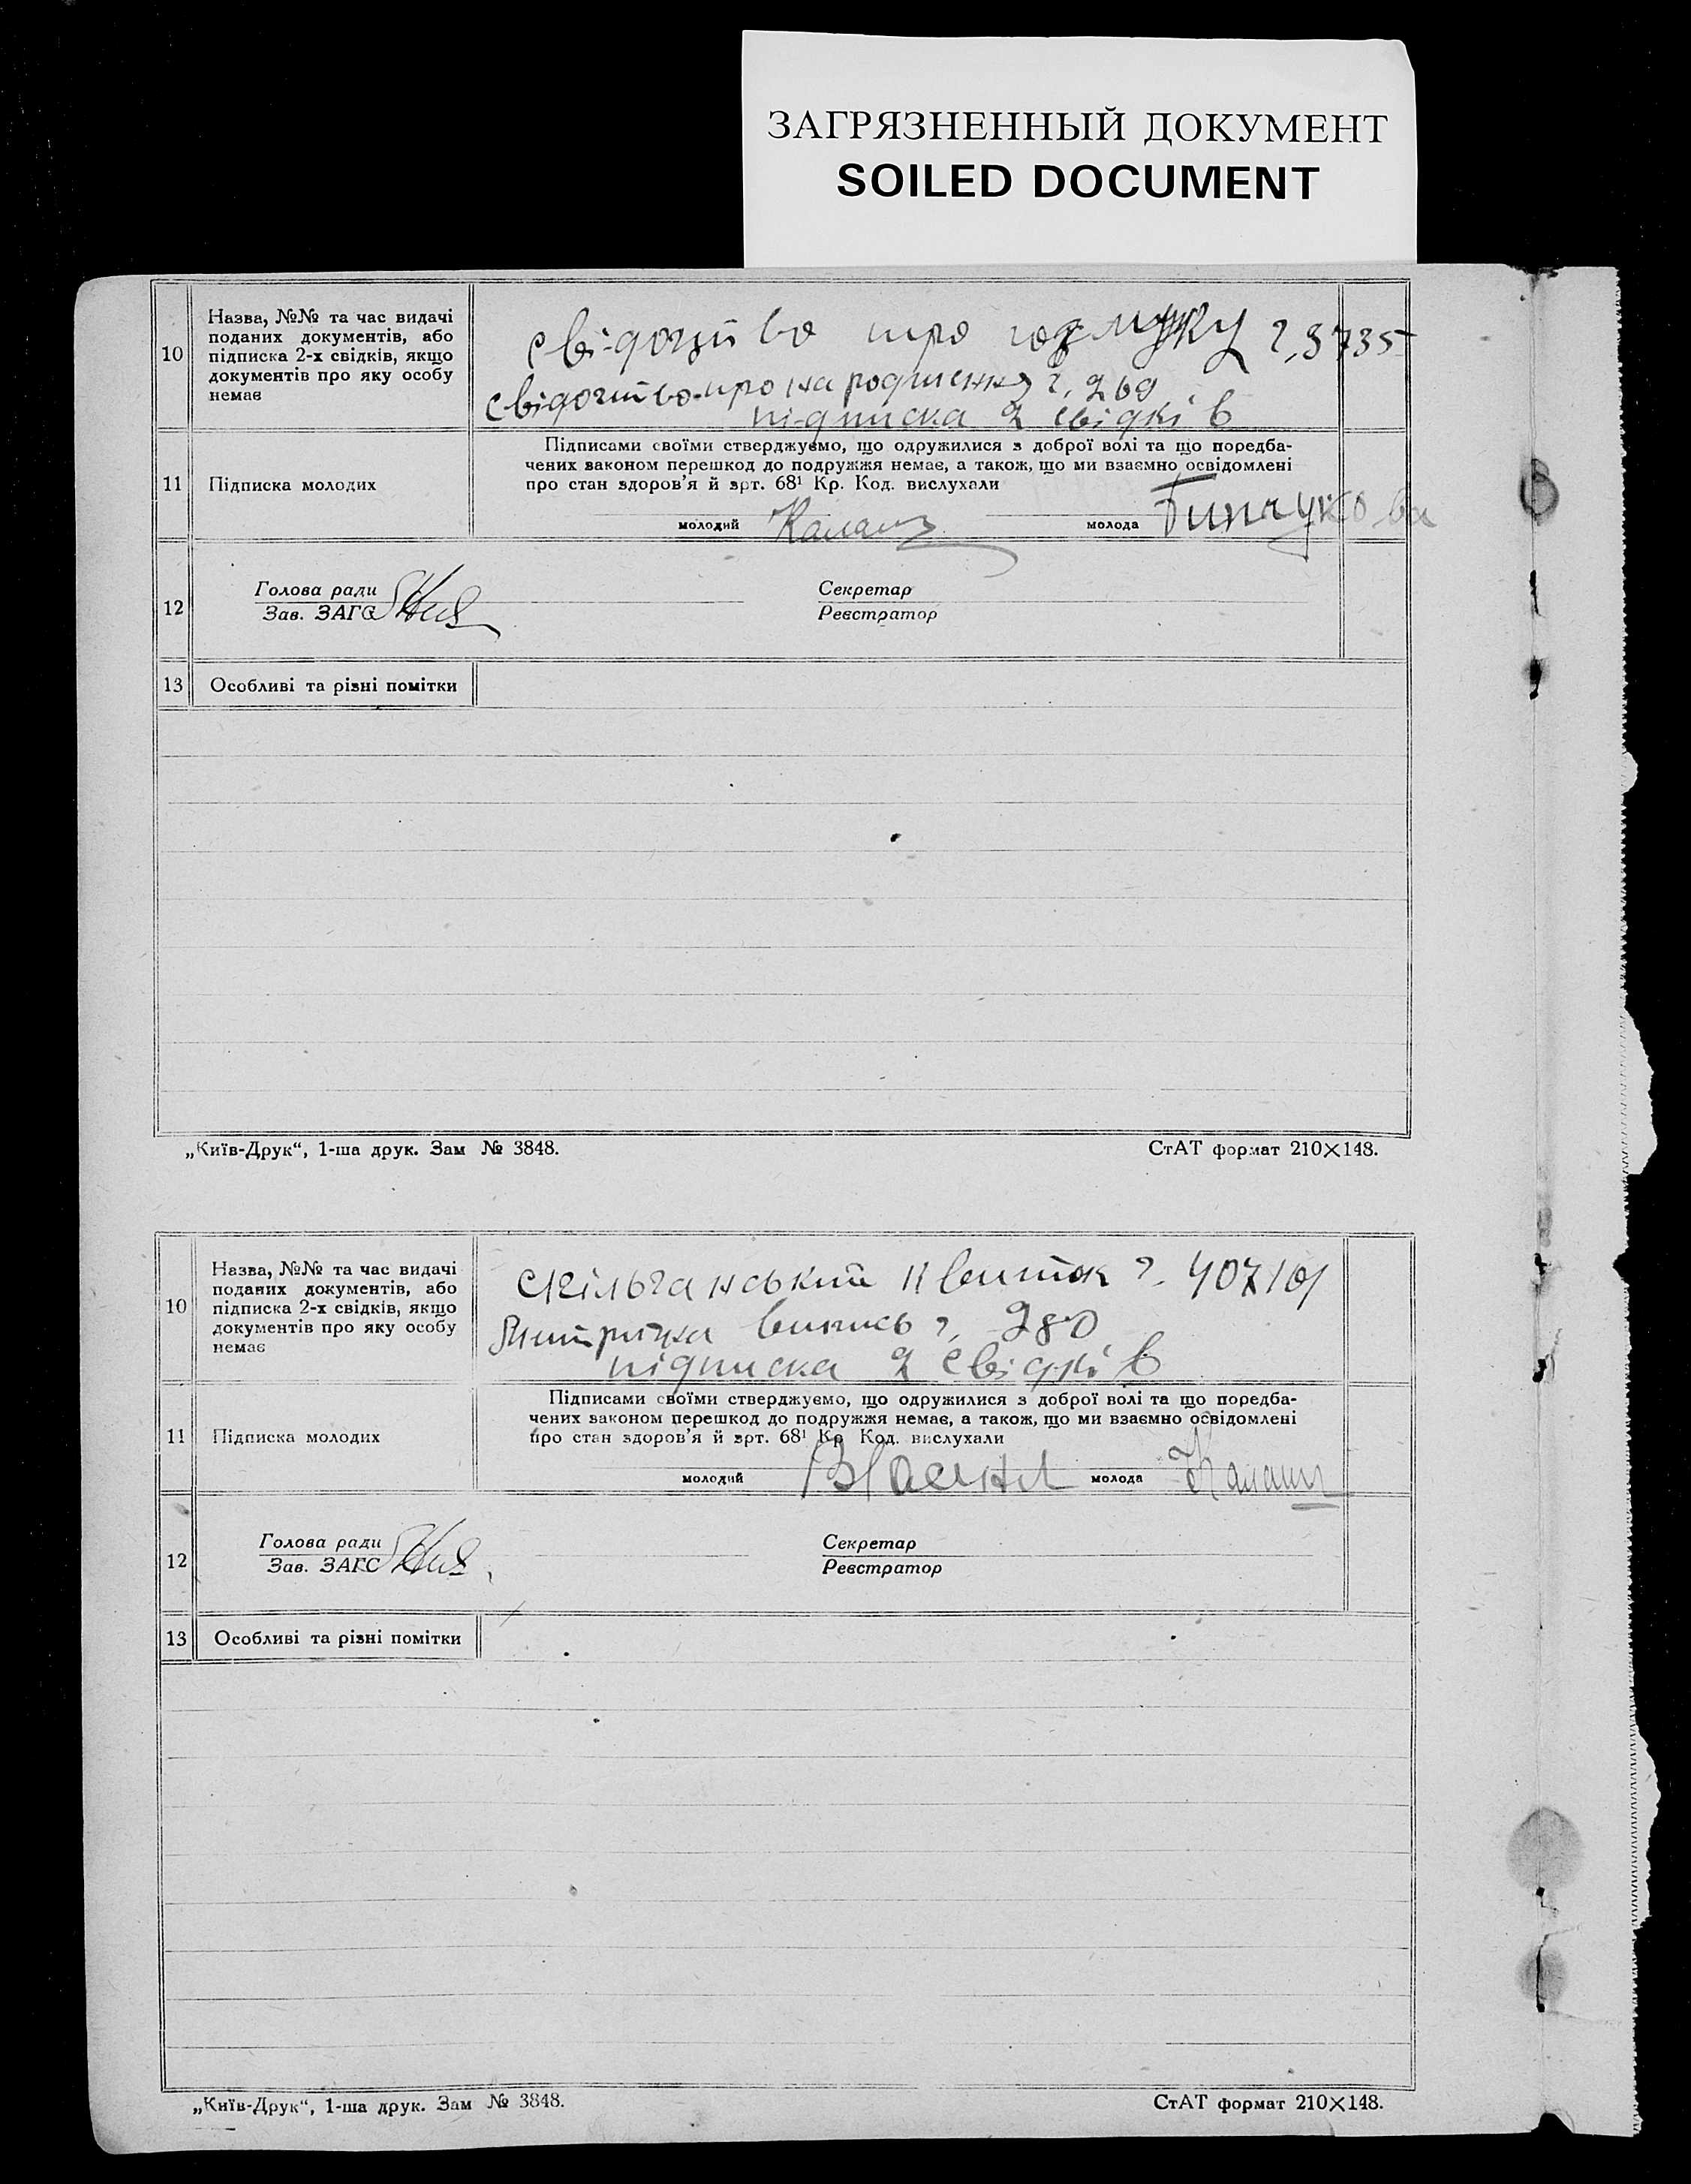 ЗАГРЯЗНЕННЫЙ ДОКУМЕНТ
SOILED DOCUMENT
10
Назва, №№ та час видачі
поданих документів, або
підписка 2-х свідків, якщо
документів про яку особу
немає
свідоцтво про ч. 3735
свідоцтво про народження ч. 269
підписка 2 свідків
11
Підписка молодих
Підписами своїми стверджуємо, що одружилися з доброї волі та що поредба-
чених законом перешкод до подружжя немає, а також, що ми взаємно освідомлені
про стан здоров'я й арт. 68¹ Кр. Код. вислухали
молодий
молода
12
Голова ради
Зав. ЗАГС
Секретар
Реєстратор
13
Особливі та різні помітки
„Київ-Друк“, 1-ша друк. Зам № 3848.
СтАТ формат 210×148.
10
Назва, №№ та час видачі
поданих документів, або
підписка 2-х свідків, якщо
документів про яку особу
немає
квиток ч.
випись ч. 280
підписка 2 свідків
11
Підписка молодих
Підписами своїми стверджуємо, що одружилися з доброї волі та що поредба-
чених законом перешкод до подружжя немає, а також, що ми взаємно освідомлені
про стан здоров'я й арт. 68¹ Кр Код. вислухали
молодий
молода
12
Голова ради
Зав. ЗАГС
Секретар
Реєстратор
13
Особливі та різні помітки
„Київ-Друк“, 1-ша друк. Зам № 3848.
СтАТ формат 210×148.